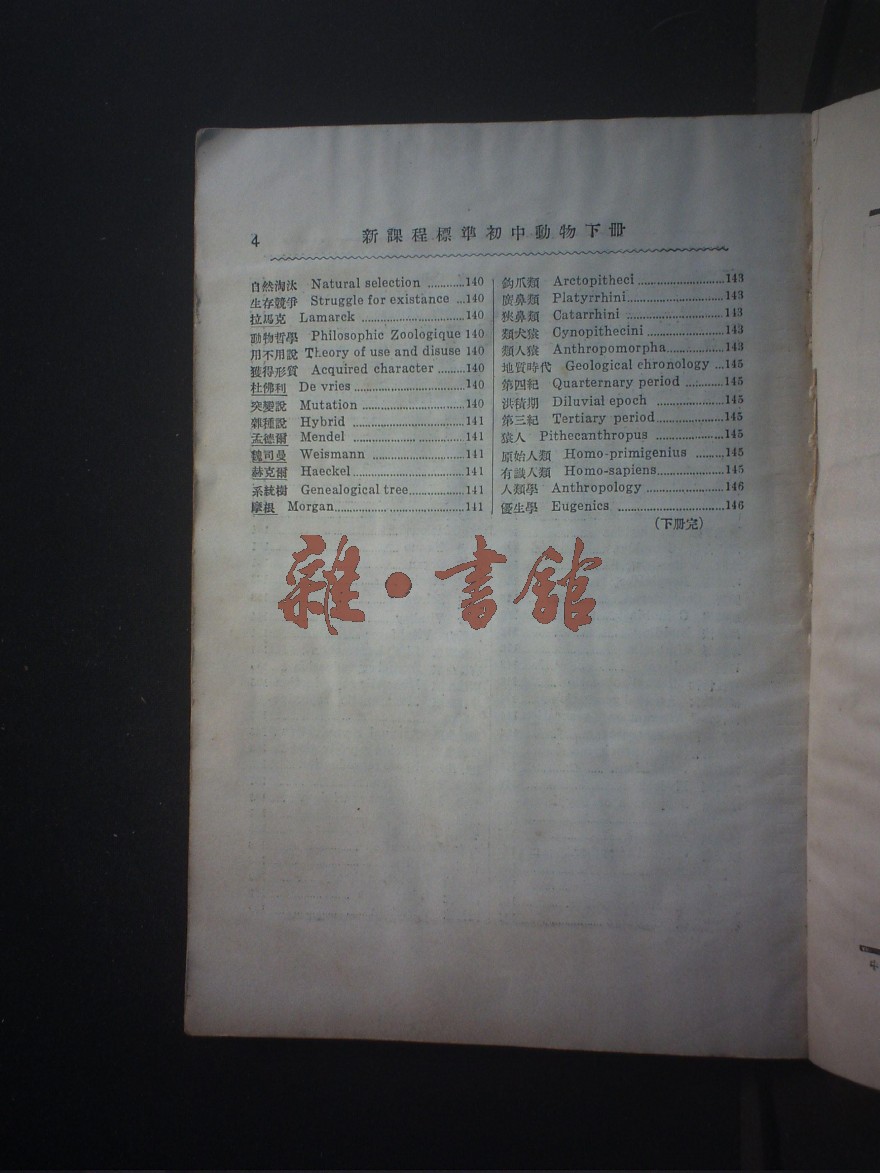 4
新課程標準初中動物下冊
自然淘汰 Natural selection ...........140
生存競爭 Struggle for existance ...140
拉馬克 Lamarck ...............................140
動物哲學 Philosophic Zoologique 140
用不用說 Theory of use and disuse 140
獲得形質 Acquired character ........140
杜佛利 De vries .................................140
突變說 Mutation ...............................140
雜種說 Hybrid ..................................141
孟德爾 Mendel ..................................141
魏司曼 Weismann ............................141
赫克爾 Haeckel .................................141
系統樹 Genealogical tree.................141
摩根 Morgan.......................................141
鈎爪類 Arctopitheci ..........................143
廣鼻類 Platyrrhini.............................143
狹鼻類 Catarrhini .............................143
類犬猿 Cynopithecini ........................143
類人猿 Anthropomorpha...................143
地質時代 Geological chronology ...145
第四紀 Quarternary period ............145
洪積期 Diluvial epoch ......................145
第三紀 Tertiary period......................145
猿人 Pithecanthropus ......................145
原始人類 Homo-primigenius .......145
有識人類 Homo-sapiens....................145
人類學 Anthropology .........................146
優生學 Eugenics .................................146
(下册完)
雜•書館